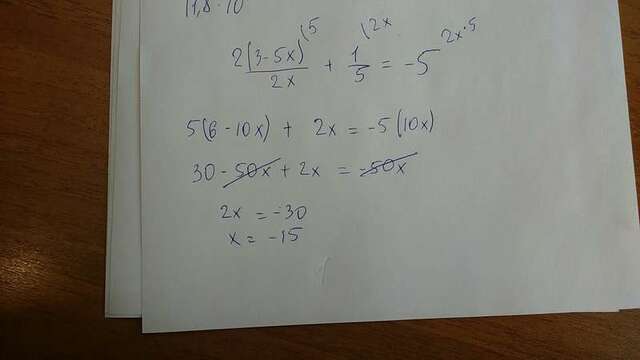 11,8 · 10
2(3-5x)⁽⁵ / 2x + 1⁽²ˣ / 5 = -5 ²ˣ·⁵
5(6-10x) + 2x = -5(10x)
30 - 50x + 2x = -50x
2x = -30
x = -15